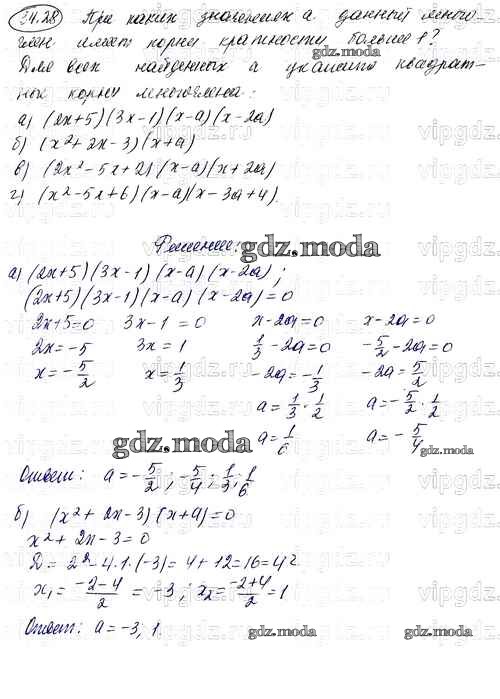 34.28 При каких значениях a данный много-
член имеет корни кратности больше 1?
Для всех найденных a укажите кратные
корни многочлена:
а) (2x+5)(3x-1)(x-a)(x-2a)
б) (x²+2x-3)(x+a)
в) (2x²-5x+2)(x-a)(x+2a)
г) (x²-5x+6)(x-a)(x-3a+4).
Решение:
gdz.moda
а) (2x+5)(3x-1)(x-a)(x-2a);
(2x+5)(3x-1)(x-a)(x-2a)=0
2x+5=0 3x-1=0 x-2a=0 x-2a=0
2x=-5 3x=1 1/3-2a=0 -5/2-2a=0
x=-5/2 x=1/3 -2a=-1/3 -2a=5/2
a=1/3·1/2 a=-5/2·1/2
a=1/6 a=-5/4
gdz.moda
Ответ: a=-5/2;-5/4;1/3;1/6
б) (x²+2x-3)(x+a)=0
x²+2x-3=0
D=2²-4·1·(-3)=4+12=16=4²
x₁=(-2-4)/2=-3; x₂=(-2+4)/2=1
Ответ: a=-3; 1.
gdz.moda gdz.moda